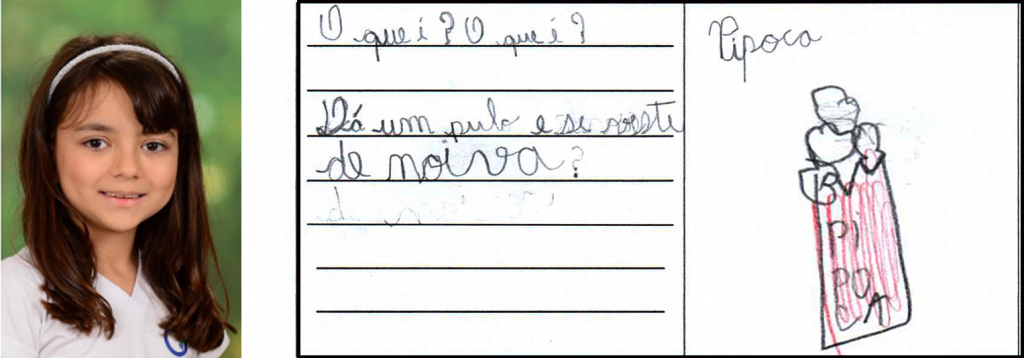 O que é? O que é?
Dá um pulo e se veste
de noiva?
Pipoca
PI
PO
A